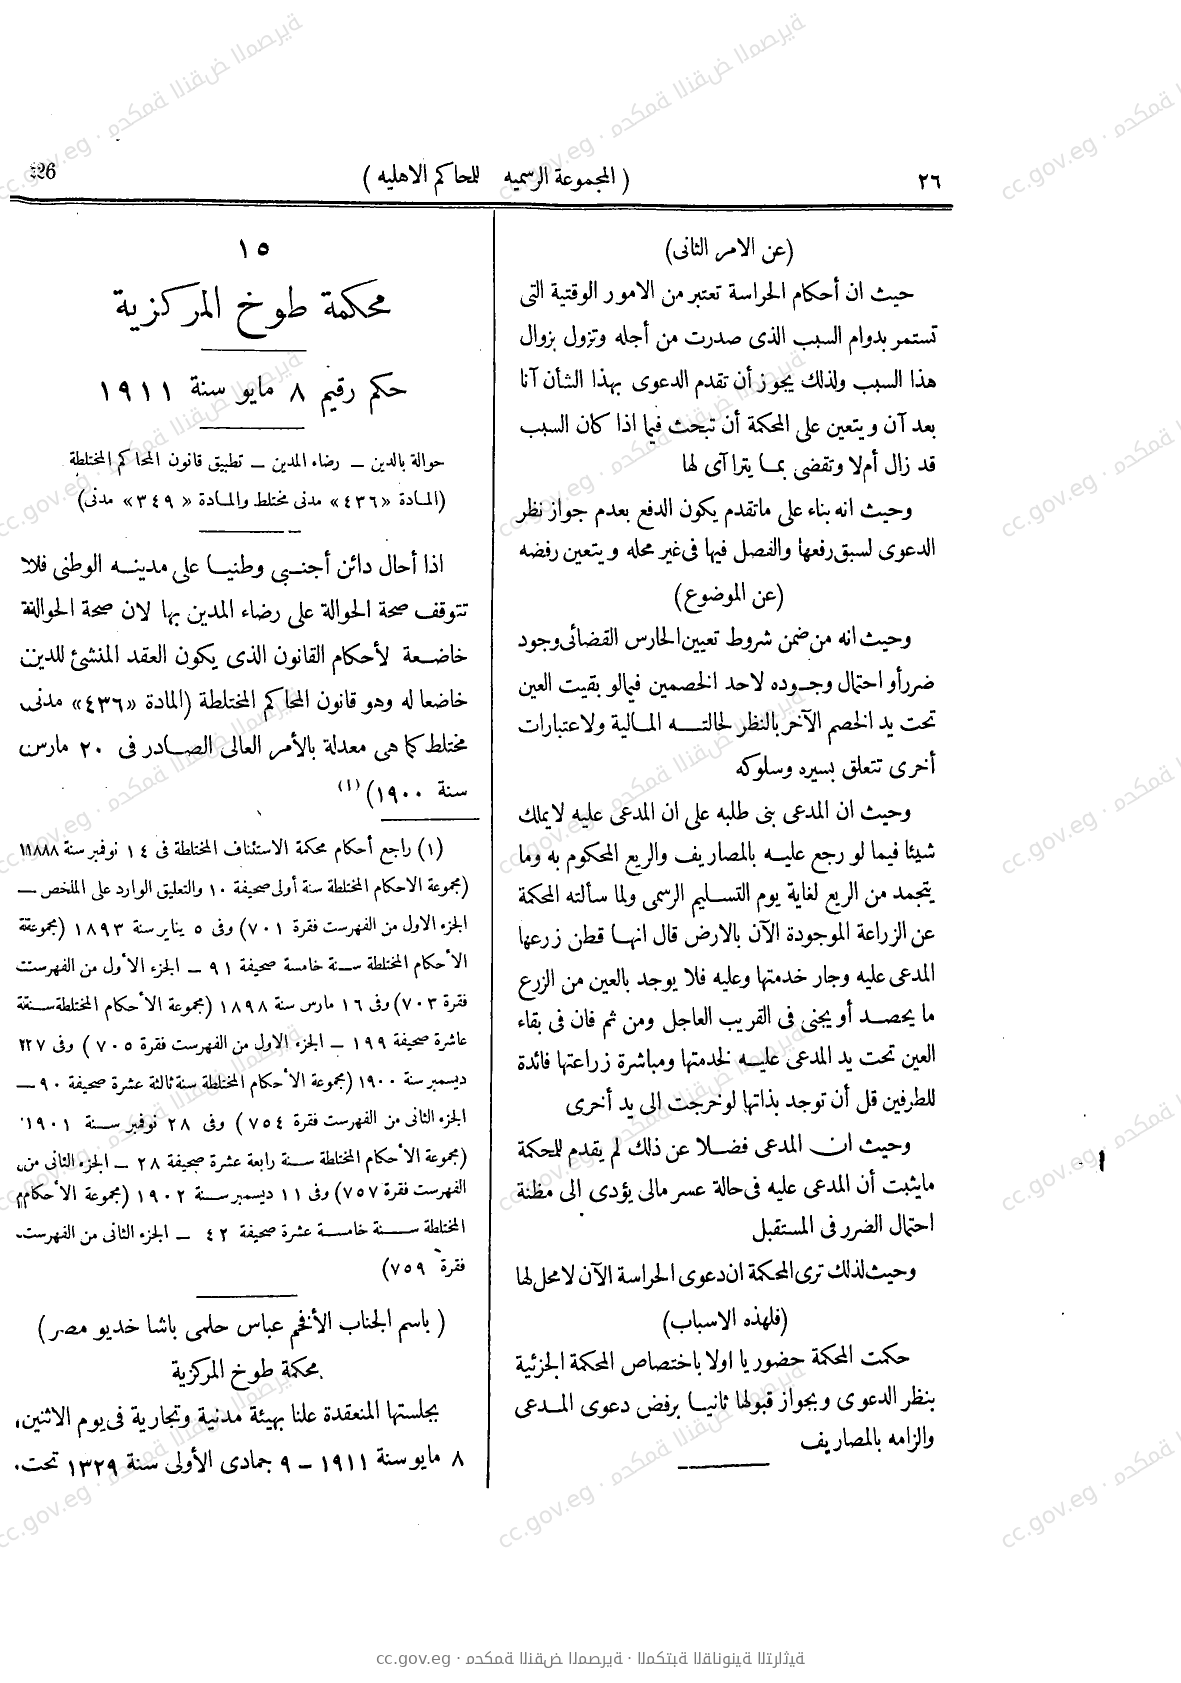 ٢٦
( المجموعة الرسميه للمحاكم الاهليه )
26
(عن الامر الثانى)
حيث ان أحكام الحراسة تعتبر من الامور الوقتية التى
تستمر بدوام السبب الذى صدرت من أجله وتزول بزوال
هذا السبب ولذلك يجوز أن تقدم الدعوى بهذا الشأن آنا
بعد آن ويتعين على المحكمة أن تبحث فيما اذا كان السبب
قد زال أم لا وتقضى بما يتراآى لها
وحيث انه بناء على ماتقدم يكون الدفع بعدم جواز نظر
الدعوى لسبق رفعها والفصل فيها فى غير محله ويتعين رفضه
(عن الموضوع)
وحيث انه من ضمن شروط تعيين الحارس القضائى وجود
ضرر أو احتمال وجوده لاحد الخصمين فيمالو بقيت العين
تحت يد الخصم الآخر بالنظر لحالته المالية ولاعتبارات
أخرى تتعلق بسيره وسلوكه
وحيث ان المدعى بنى طلبه على ان المدعى عليه لايملك
شيئا فيما لو رجع عليه بالمصاريف والريع المحكوم به وما
يتجمد من الريع لغاية يوم التسليم الرسمى ولما سألته المحكمة
عن الزراعة الموجودة الآن بالارض قال انها قطن زرعها
المدعى عليه وجار خدمتها وعليه فلا يوجد بالعين من الزرع
ما يحصد أو يجنى فى القريب العاجل ومن ثم فان فى بقاء
العين تحت يد المدعى عليه لخدمتها ومباشرة زراعتها فائدة
للطرفين قل أن توجد بذاتها لوخرجت الى يد أخرى
وحيث ان المدعى فضلا عن ذلك لم يقدم للمحكمة
مايثبت أن المدعى عليه فى حالة عسر مالى يؤدى الى مظنة
احتمال الضرر فى المستقبل
وحيث لذلك ترى المحكمة ان دعوى الحراسة الآن لا محل لها
(فلهذه الاسباب)
حكمت المحكمة حضوريا اولا باختصاص المحكمة الجزئية
بنظر الدعوى وبجواز قبولها ثانيا برفض دعوى المدعى
والزامه بالمصاريف
١٥
محكمة طوخ المركزية
حكم رقيم ٨ مايو سنة ١٩١١
حوالة بالدين — رضاء المدين — تطبيق قانون المحاكم المختلطة
(المادة «٤٣٦» مدنى مختلط والمادة «٣٤٩» مدنى)
اذا أحال دائن أجنبى وطنيا على مدينه الوطنى فلا
تتوقف صحة الحوالة على رضاء المدين بها لان صحة الحوالة
خاضعة لأحكام القانون الذى يكون العقد المنشئ للدين
خاضعا له وهو قانون المحاكم المختلطة (المادة «٤٣٦» مدنى
مختلط كما هى معدلة بالأمر العالى الصادر فى ٢٠ مارس
سنة ١٩٠٠) (١)
(١) راجع أحكام محكمة الاستئناف المختلطة فى ١٤ نوفمبر سنة ١٨٨٨
(مجموعة الاحكام المختلطة سنة أولى صحيفة ١٠ والتعليق الوارد على الملخص —
الجزء الاول من الفهرست فقرة ٧٠١) وفى ٥ يناير سنة ١٨٩٣ (مجموعة
الأحكام المختلطة سنة خامسة صحيفة ٩١ — الجزء الأول من الفهرست
فقرة ٧٠٣) وفى ١٦ مارس سنة ١٨٩٨ (مجموعة الأحكام المختلطة سنة
عاشرة صحيفة ١٩٩ — الجزء الاول من الفهرست فقرة ٧٠٥ ) وفى ٢٧
ديسمبر سنة ١٩٠٠ (مجموعة الأحكام المختلطة سنة ثالثة عشرة صحيفة ٩٠ —
الجزء الثانى من الفهرست فقرة ٧٥٤ ) وفى ٢٨ نوفمبر سنة ١٩٠١
(مجموعة الأحكام المختلطة سنة رابعة عشرة صحيفة ٢٨ — الجزء الثانى من
الفهرست فقرة ٧٥٧) وفى ١١ ديسمبر سنة ١٩٠٢ (مجموعة الأحكام
المختلطة سنة خامسة عشرة صحيفة ٤٢ — الجزء الثانى من الفهرست
فقرة ٧٥٩)
( باسم الجناب الأفخم عباس حلمى باشا خديو مصر )
محكمة طوخ المركزية
بجلستها المنعقدة علنا بهيئة مدنية وتجارية فى يوم الاثنين
٨ مايو سنة ١٩١١ — ٩ جمادى الأولى سنة ١٣٢٩ تحت
cc.gov.eg · محكمة النقض المصرية · المكتبة القانونية التراثية